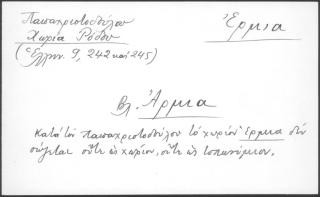 Παπαχριστοδούλου
Χωρία Ρόδου
Ἔρμια
(Ἑλλην. 9, 242 καὶ 245)
Βλ. Ἄρμια
Κατὰ τὸν Παπαχριστοδούλου τὸ χωριὸν Ἔρμια δὲν
σώζεται οὔτε ὡς χωρίον, οὔτε ὡς τοπωνύμιον.